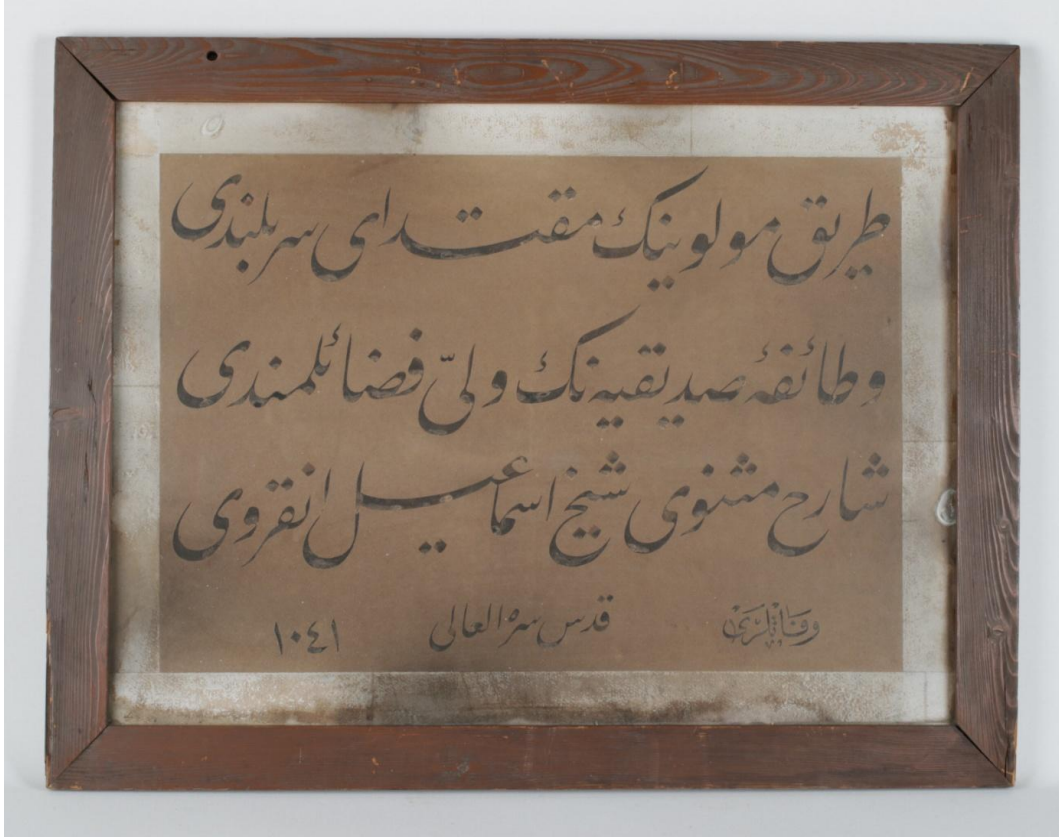 طريق مولوينك مقتداى سربلندى
وطائفهٔ صديقيه نك ولىّ فضائلمندى
شارح مثنوى شيخ اسماعيل انقروى
وفاتلرى قدس سره العالى ١٠٤١